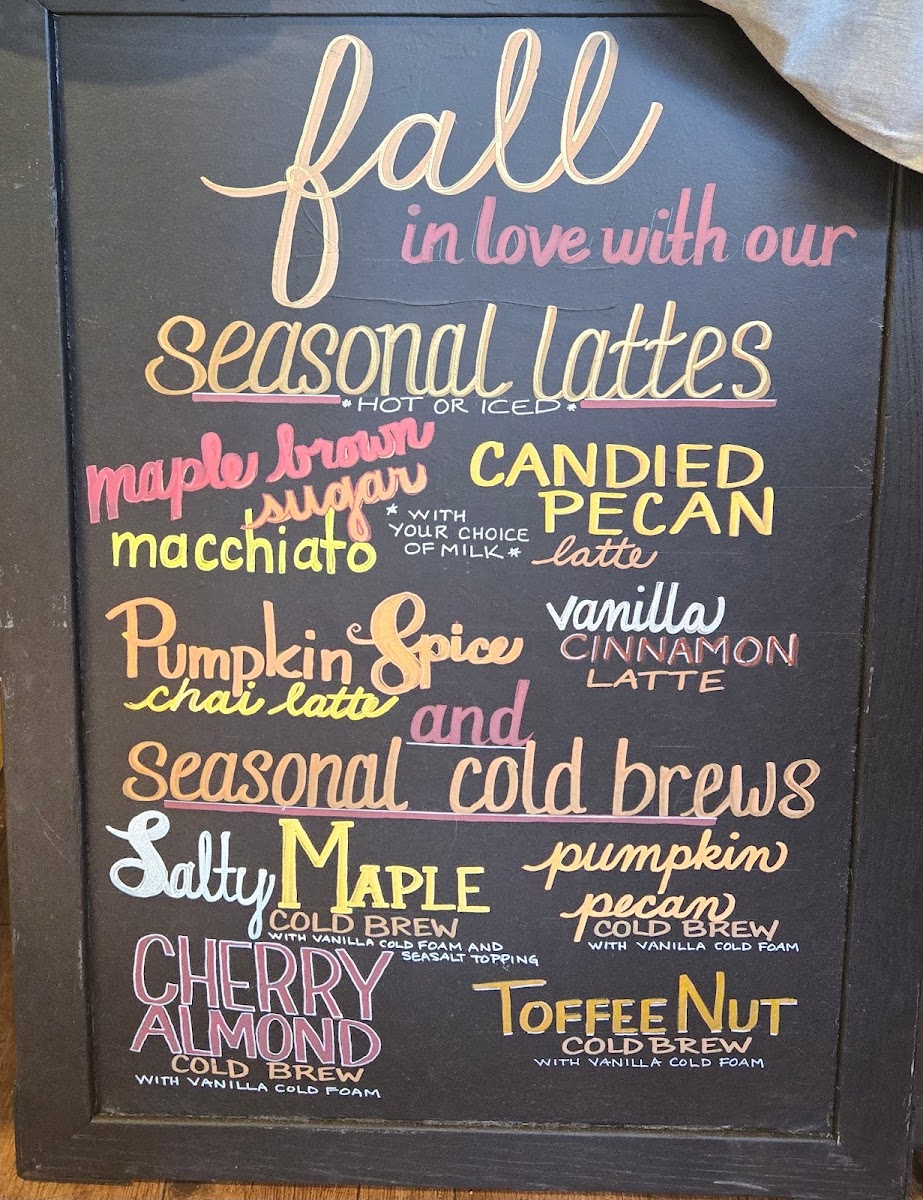 fall
in love with our
seasonal lattes
*HOT OR ICED*
maple brown
sugar
macchiato
* WITH
YOUR CHOICE
OF MILK *
CANDIED
PECAN
latte
Pumpkin Spice
chai latte
vanilla
CINNAMON
LATTE
and
Seasonal cold brews
Salty MAPLE
COLD BREW
WITH VANILLA COLD FOAM AND
SEASALT TOPPING
pumpkin
pecan
COLD BREW
WITH VANILLA COLD FOAM
CHERRY
ALMOND
COLD BREW
WITH VANILLA COLD FOAM
TOFFEE NUT
COLD BREW
WITH VANILLA COLD FOAM